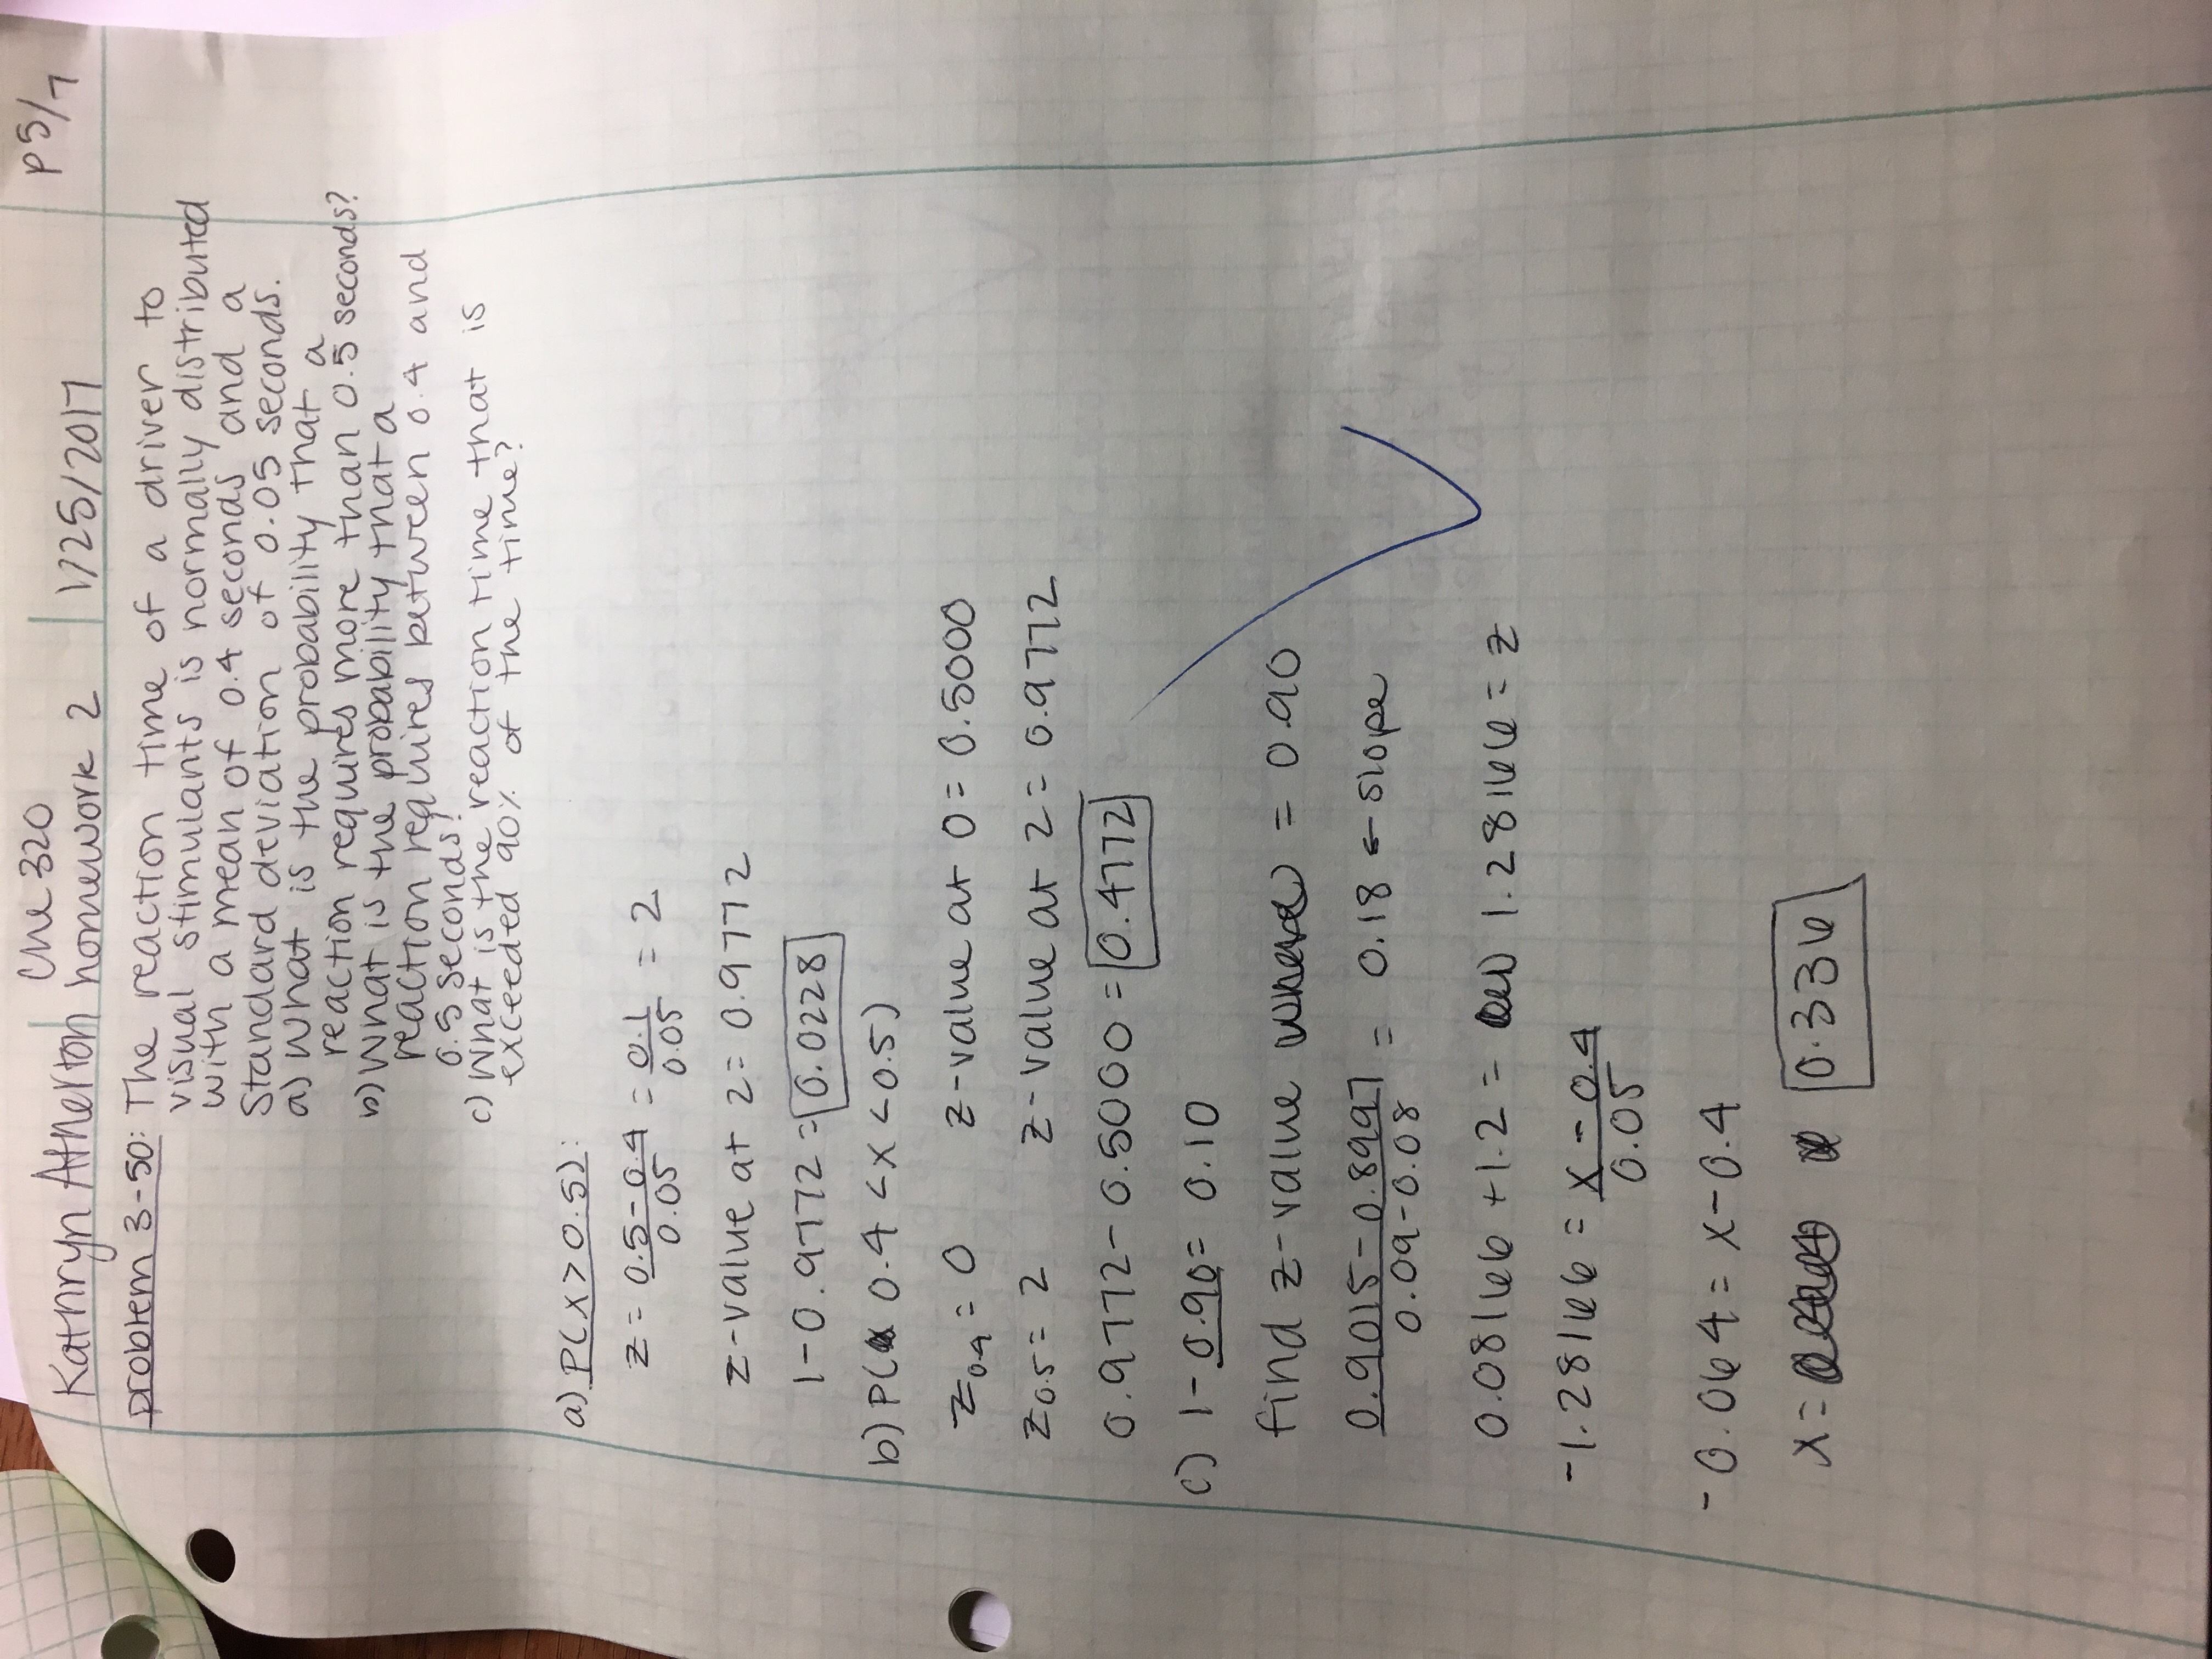 Che 320
Kathryn Atherton homework 2 1/25/2017 p5/7
problem 3-50: The reaction time of a driver to
visual stimulants is normally distributed
with a mean of 0.4 seconds and a
standard deviation of 0.05 seconds.
a) What is the probability that a
reaction requires more than 0.5 seconds?
b) What is the probability that a
reaction requires between 0.4 and
0.5 seconds?
c) What is the reaction time that is
exceeded 90% of the time?
a) P(X > 0.5):
z = (0.5 - 0.4)/0.05 = 0.1/0.05 = 2
z-value at 2 = 0.9772
1 - 0.9772 = 0.0228
b) P( 0.4 < X < 0.5)
z0.4 = 0 z-value at 0 = 0.5000
z0.5 = 2 z-value at 2 = 0.9772
0.9772 - 0.5000 = 0.4772
c) 1 - 0.90 = 0.10
find z-value where = 0.90
(0.9015 - 0.8997)/(0.09 - 0.08) = 0.18 ← slope
0.08166 + 1.2 = 1.28166 = z
-1.28166 = (x - 0.4)/0.05
-0.064 = x - 0.4
x = 0.336